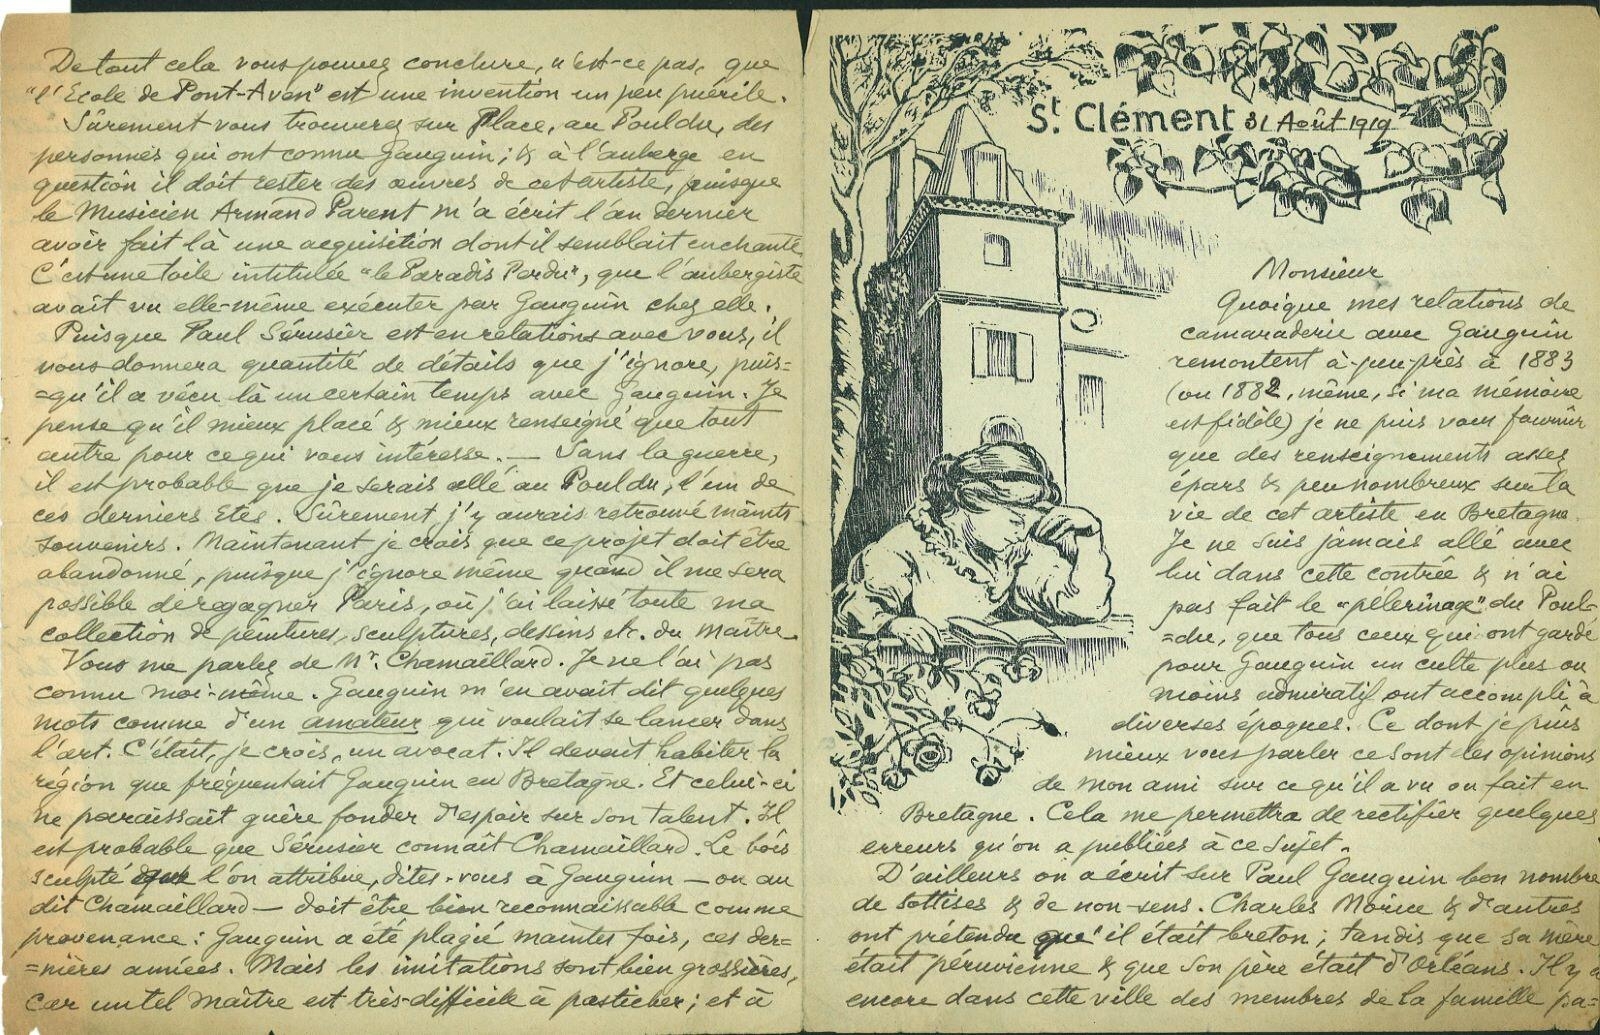 De tout cela vous pouvez conclure, n'est-ce pas, que
"l'École de Pont-Aven" est une invention un peu puérile.
Sûrement vous trouverez sur Place, au Pouldu, des
personnes qui ont connu Gauguin; & à l'auberge en
question il doit rester des œuvres de cet artiste, puisque
le Musicien Armand Parent m'a écrit l'an dernier
avoir fait là une acquisition dont il semblait enchanté
C'est une toile intitulée "le Paradis Perdu", que l'aubergiste
avait vu elle-même exécuter par Gauguin chez elle.
Puisque Paul Sérusier est en relations avec vous, il
vous donnera quantité de détails que j'ignore, puis=
=qu'il a vécu là un certain temps avec Gauguin. Je
pense qu'il mieux placé & mieux renseigné que tout
autre pour ce qui vous intéresse. — Sans la guerre,
il est probable que je serais allé au Pouldu, l'un de
ces derniers Étés. Sûrement j'y aurais retrouvé maints
souvenirs. Maintenant je crois que ce projet doit être
abandonné, puisque j'ignore même quand il me sera
possible de regagner Paris, où j'ai laissé toute ma
collection de peintures, sculptures, dessins etc. du maître.
Vous me parlez de Mr. Chamaillard. Je ne l'ai pas
connu moi-même. Gauguin m'en avait dit quelques
mots comme d'un amateur qui voulait se lancer dans
l'art. C'était, je crois, un avocat. Il devait habiter la
région que fréquentait Gauguin en Bretagne. Et celui-ci
ne paraissait guère fonder d'espoir sur son talent. Il
est probable que Sérusier connaît Chamaillard. Le bois
sculpté que l'on attribue, dites-vous à Gauguin — ou au
dit Chamaillard — doit être bien reconnaissable comme
provenance: Gauguin a été plagié maintes fois, ces der=
=nières années. Mais les imitations sont bien grossières,
car un tel maître est très-difficile à pasticher; et à
St. Clément 31 Août 1919
Monsieur
Quoique mes relations de
camaraderie avec Gauguin
remontent à-peu-près à 1883
(ou 1882, même, si ma mémoire
est fidèle) je ne puis vous fournir
que des renseignements assez
épars & peu nombreux sur la
vie de cet artiste en Bretagne.
Je ne suis jamais allé avec
lui dans cette contrée & n'ai
pas fait le "pèlerinage" du Poul=
=du, que tous ceux qui ont gardé
pour Gauguin un culte plus ou
moins admiratif ont accompli à
diverses époques. Ce dont je puis
mieux vous parler ce sont les opinions
de mon ami sur ce qu'il a vu ou fait en
Bretagne. Cela me permettra de rectifier quelques
erreurs qu'on a publiées à ce sujet.
D'ailleurs on a écrit sur Paul Gauguin bon nombre
de sottises & de non-sens. Charles Morice & d'autres
ont prétendu qu'il était breton; tandis que sa mère
était péruvienne & que son père était d'Orléans. Il y a
encore dans cette ville des membres de la famille pa=